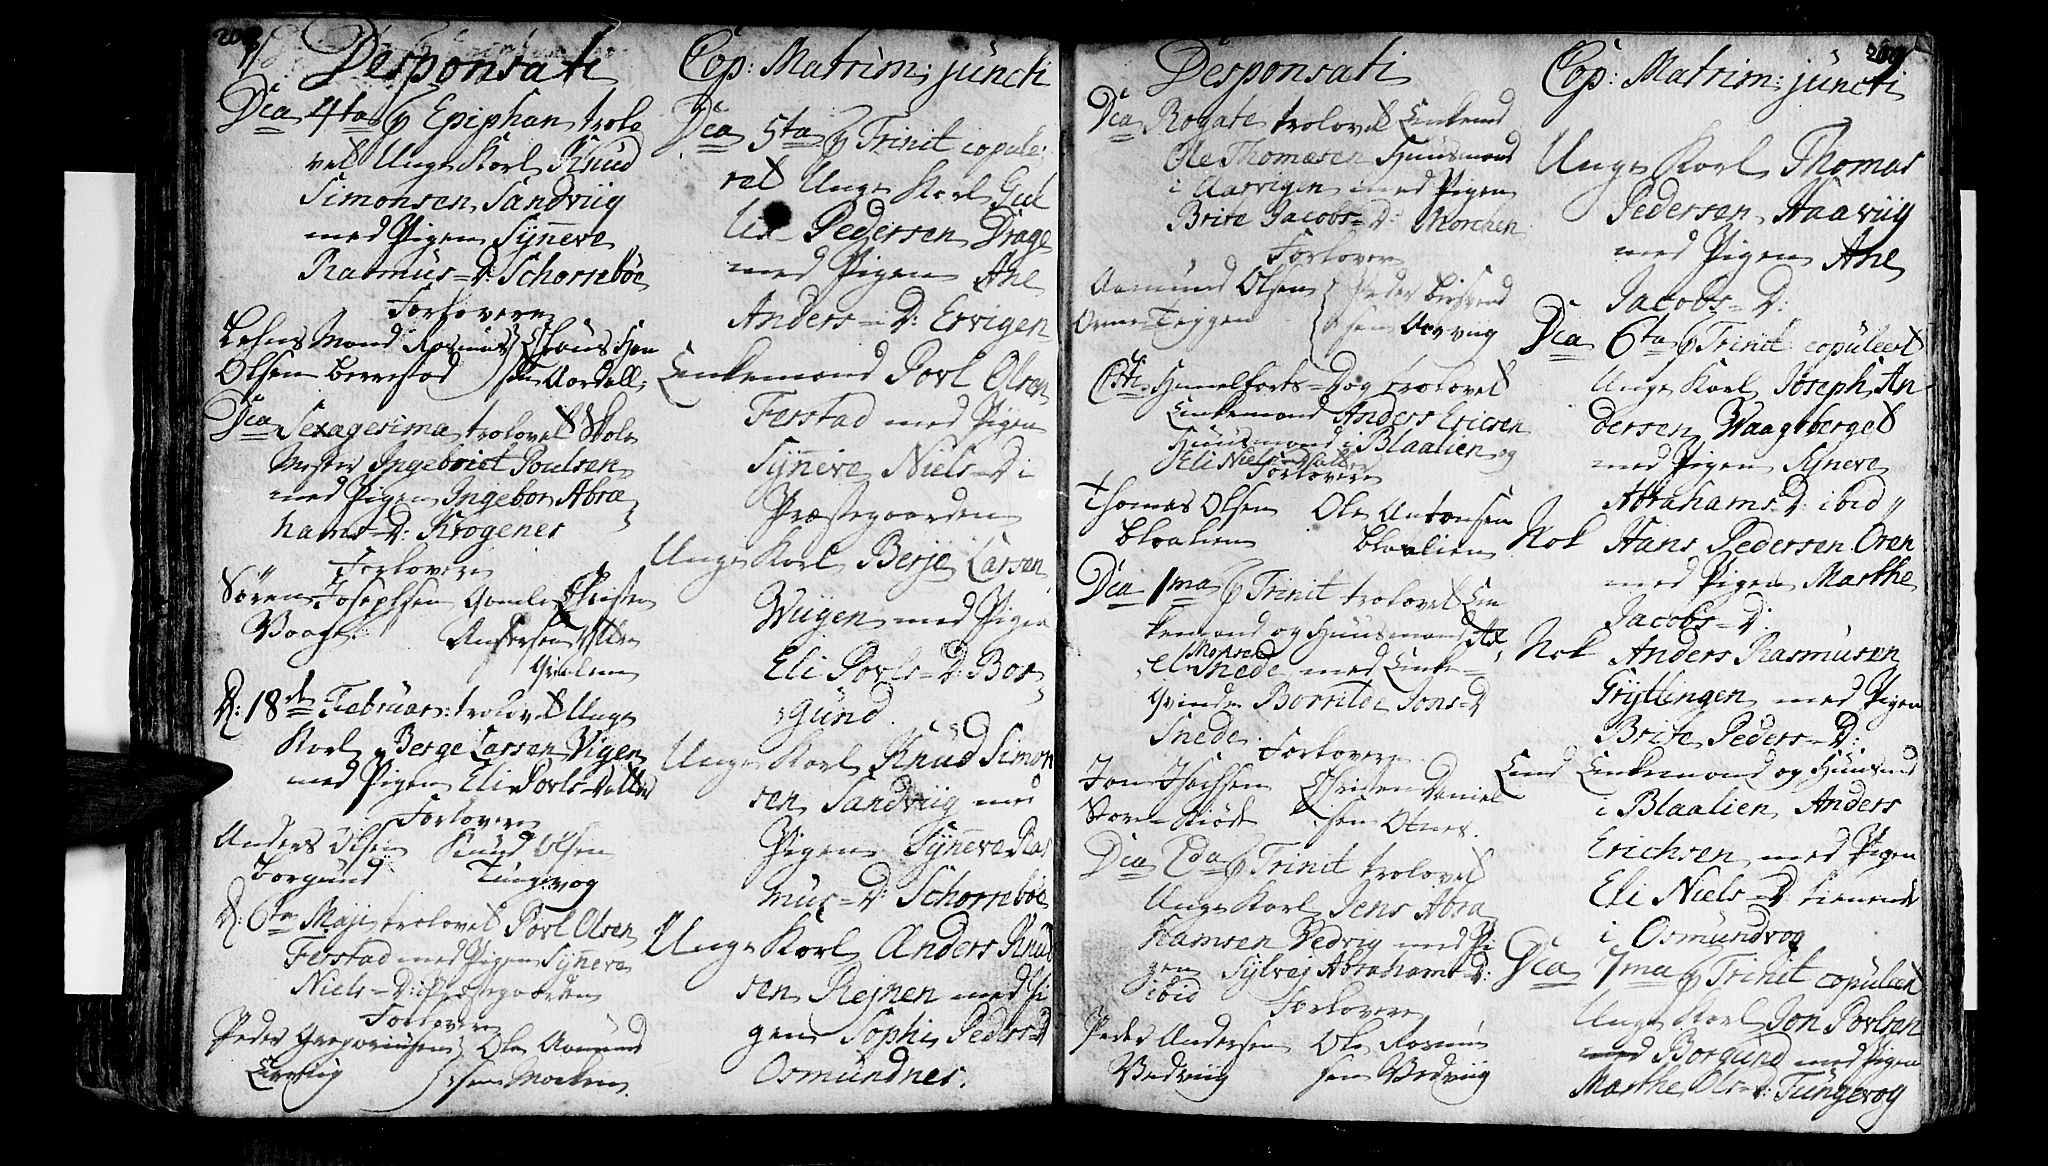 208
Desponsati
Dca 4ta p Epiphan trolo
vet Unge Karl Knud
Simonsen Sandviig
med Pigen Syneve
Rasmus-D: Schornebøe
Forlovere
Lehns Mand Rasmus
Olsen Berrestad
sen Aardall
Dca Sexagesima trolovet Skole
Mester Ingebrict Poulsen
med Pigen Ingebor Abra
hams-D: Krogenes
Forlovere
Sören Josephsen Gamle Christen
Vaage Andersen
D: 18de Februar: trolovet Unge
Karl Berge Larsen Vigen
med Pigen Eli Povls-Datter
Forlovere
Anders Olsen Knud Olsen
Borgund Tungevog
D: 6te Maji trolovet Povl Olsen
Ferstad med Pigen Syneve
Niels-D: Præstegaarden
Forlovere
Peder Gregoriusen Ole Aamund
sen
Cop: Matrim: juncti
Dca 5ta p Trinit copule
ret Unge Karl Gul
lik Pedersen Drage
med Pigen Ane
Anders-D: Ervigen
Enkemand Povl Olsen
Ferstad med Pigen
Syneve Niels-D i
Præstegaarden
Unge Karl Berje Larsen
Wiigen med Pigen
Eli Povls-D Bor
gund.
Unge Karl Knud Simon
sen Sandviig med
Pigen Syneve Ras
mus-D: Schornebøe
Unge Karl Anders Knud
sen Rejnen med Pi
gen Sophi Peders-D
Osmundnes.
209
Desponsati
Dca Rogate trolovet Enkemd
Ole Thomesen Huusmand
i Aarvigen med Pigen
Brite Jacobs-D: Morchen
Forlovere
Aamund Olsen Peder
Teggen sen Aarviig
Christi Himelfarts-Dag trolovet
Enkemand Anders Ericsen
Huusmand i Blaalien og
Eli Niels Datter
Forlovere
Thomas Olsen Ole Antonsen
Blaalien Blaalien
Dca 1ma p Trinit trolovet En
kemand og Huusmand Ax
el Monsen Snede med Enke-
Qvinde Borrilde Jons-D
Snede.
Forlovere
Jon Isachsen Christen Daniel
sen Otnes.
Dca 2da p Trinit trolovet
Unge Karl Jens Abra
hamsen Vedvig med Pi
gen Sylvaj Abrahams-D:
ibid
Forlovere
Peder Andersen Ole Rasmu
Vedviig sen Vedviig
Cop: Matrim: juncti
Unge Karl Thomas
Pedersen Haaviig
med Pigen Ane
Jacobs-D:
Dca 6ta p Trinit copuleert
Unge Karl Joseph An-
dersen Waagsberget
med Pigen Syneve
Abrahams-D: ibid
Nok Hans Pedersen Oren
med Pigen Marthe
Jacobs-D:
Nok Anders Rasmusen
Gryttingen med Pigen
Brite Peders-D:
End Enkemand og Huusmd
i Blaalien Anders
Erichsen med Pigen
Eli Niels-D: tienende
i Osmundvog
Dca 7ma p Trinit copuleert
Unge Karl Jon Povlsen
med Borgund med Pigen
Marthe Ols-D: Tungevog